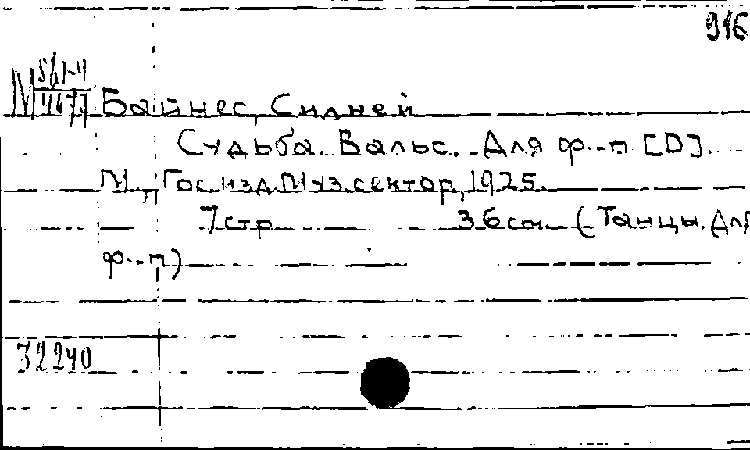 916
М 561-4
467
Байнес, Сидней
Судьба. Вальс. Для ф.-п [D].
М., Гос.изд.Муз.сектор, 1925.
7 стр 36 см (Танцы. Для
ф.-п)
32240